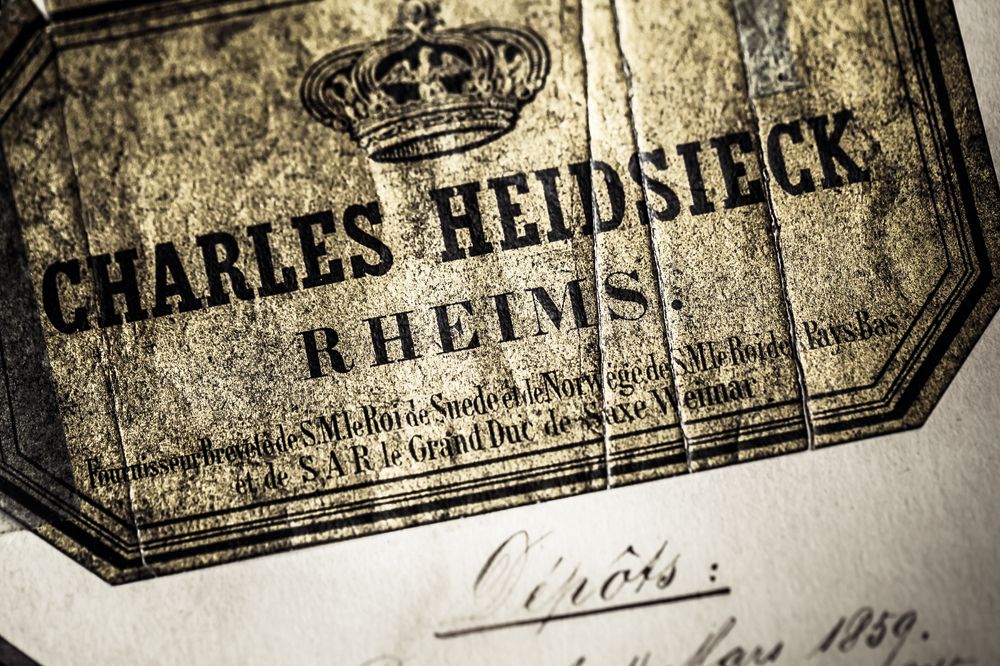 CHARLES HEIDSIECK
RHEIMS.
Fournisseur Breveté de S.M. le Roi de Suede et de Norwège de S.M. le Roi des Pays Bas
et de S A R le Grand Duc de Saxe Weimar
Dépôts :
Mars 1859.